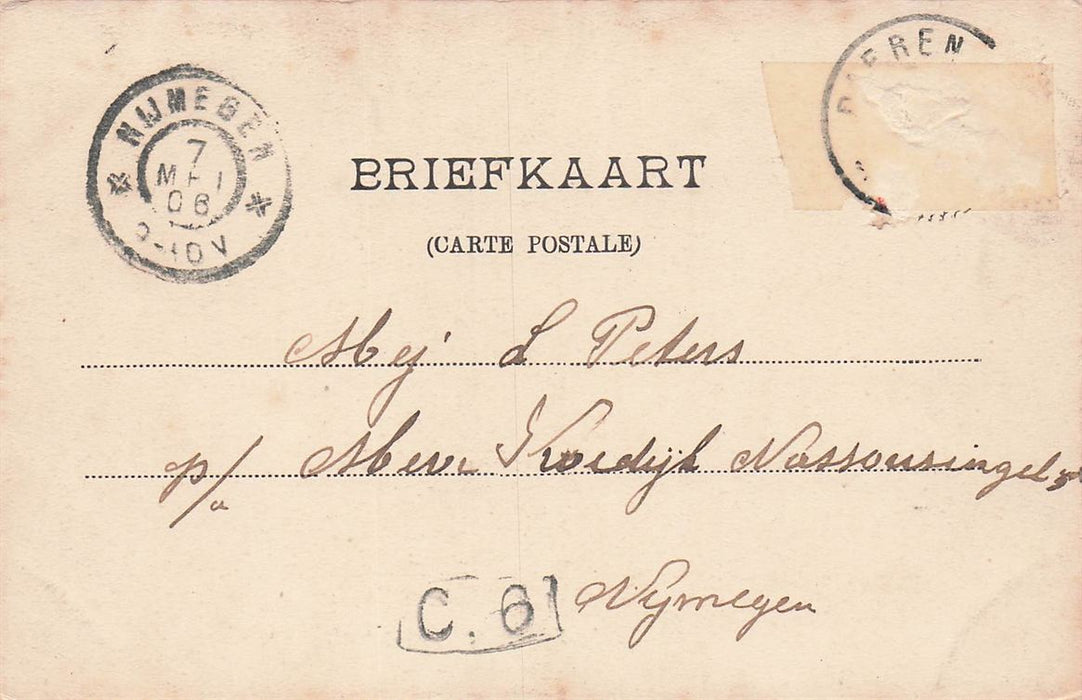 NIJMEGEN
7
MEI
06
BRIEFKAART
(CARTE POSTALE)
Mej' L Peters
p/a Mevr Kroedijk Nassousingel
C. 6
Nijmegen